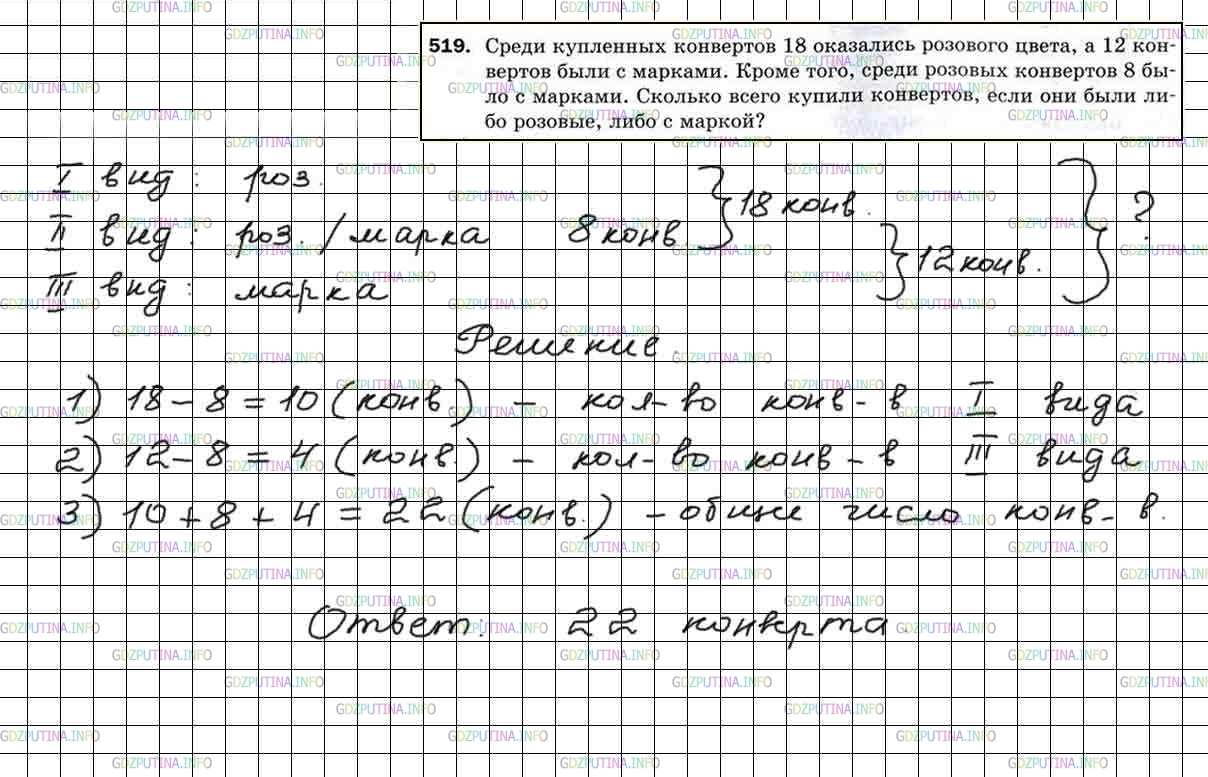 519. Среди купленных конвертов 18 оказались розового цвета, а 12 кон-
вертов были с марками. Кроме того, среди розовых конвертов 8 бы-
ло с марками. Сколько всего купили конвертов, если они были ли-
бо розовые, либо с маркой?
I вид : роз.
II вид : роз. / марка 8 конв. } 18 конв. } ?
III вид : марка } 12 конв.
Решение.
1) 18 - 8 = 10 (конв.) - кол-во конв-в I вида
2) 12 - 8 = 4 (конв.) - кол-во конв-в III вида
3) 10 + 8 + 4 = 22 (конв.) - общее число конв-в.
Ответ: 22 конверта.
GDZPUTINA.INFO